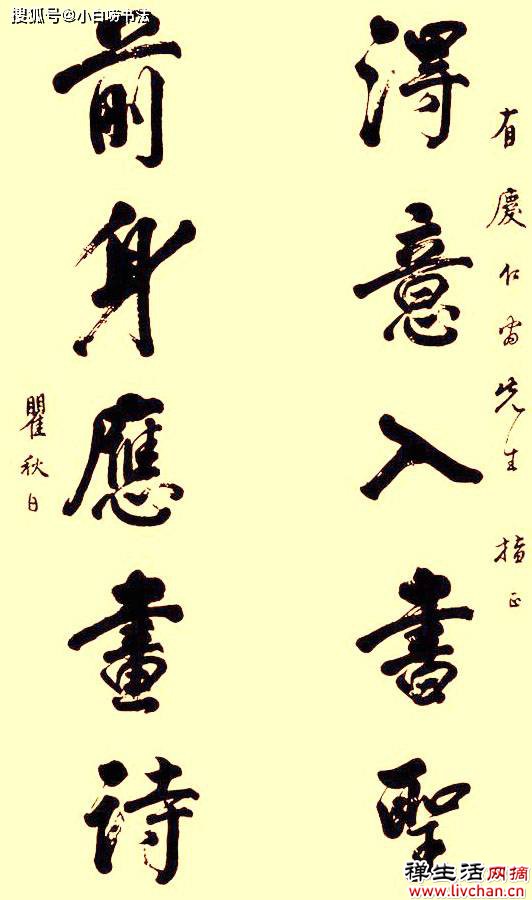 搜狐号@小白唠书法
有慶仁宙先生 指正
得意入書聖
前身應畫詩
瞿秋白
禅生活网摘
www.livchan.cn